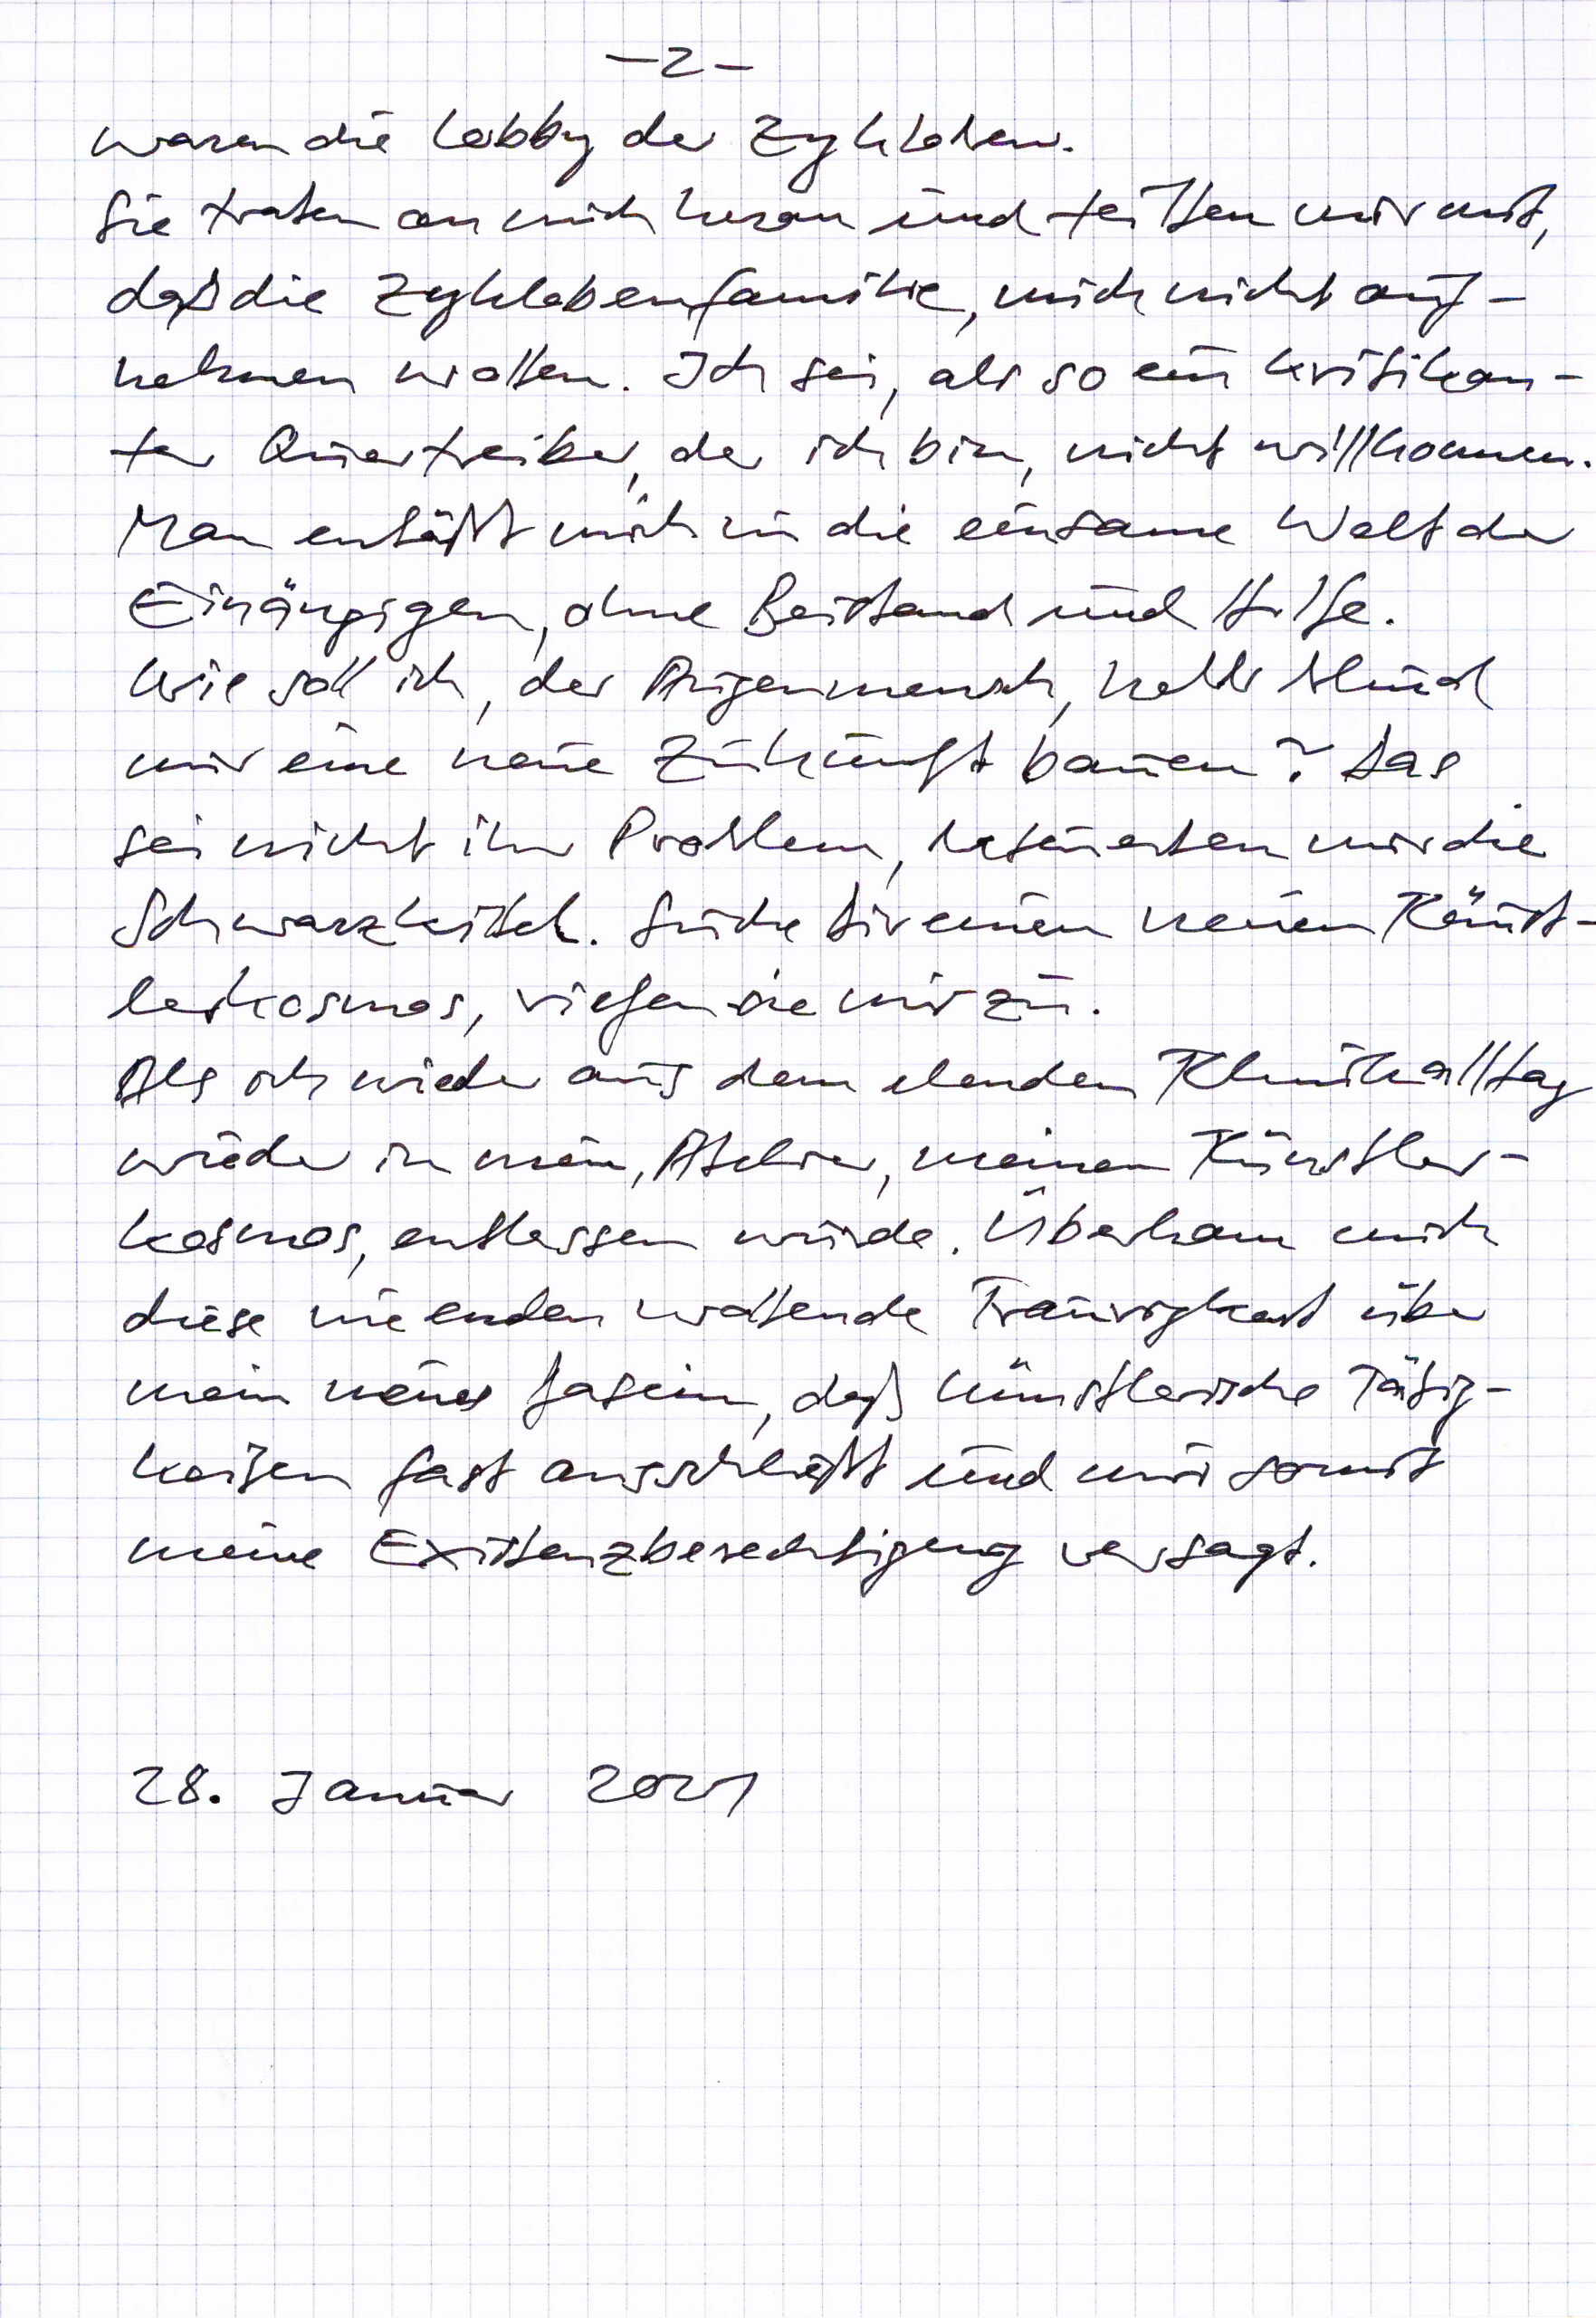 - 2 -
waren die Lobby der Zyklopen.
Sie traten an mich heran und teilten mir mit,
daß die Zyklopenfamilie, mich nicht auf-
nehmen wollen. Ich sei, als so ein kritikan-
ter Quertreiber, der ich bin, nicht willkommen.
Man entläßt mich in die einsame Welt der
Einäugigen, ohne Beistand und Hilfe.
Wie soll ich, der Augenmensch, halb blind
mir eine neue Zukunft bauen? Das
sei nicht ihr Problem, beteuerten mir die
Schwarzkittel. Suche Dir einen neuen Künst-
lerkosmos, riefen sie mir zu.
Als ich wieder aus dem elenden Klinikalltag
wieder in mein, Atelier, meinen Künstler-
kosmos, entlassen wurde. Überkam mich
diese nie enden wollende Traurigkeit über
mein neues Dasein, daß künstlerische Tätig-
keiten fast ausschließt und mir somit
meine Existenzberechtigung versagt.
28. Januar 2021